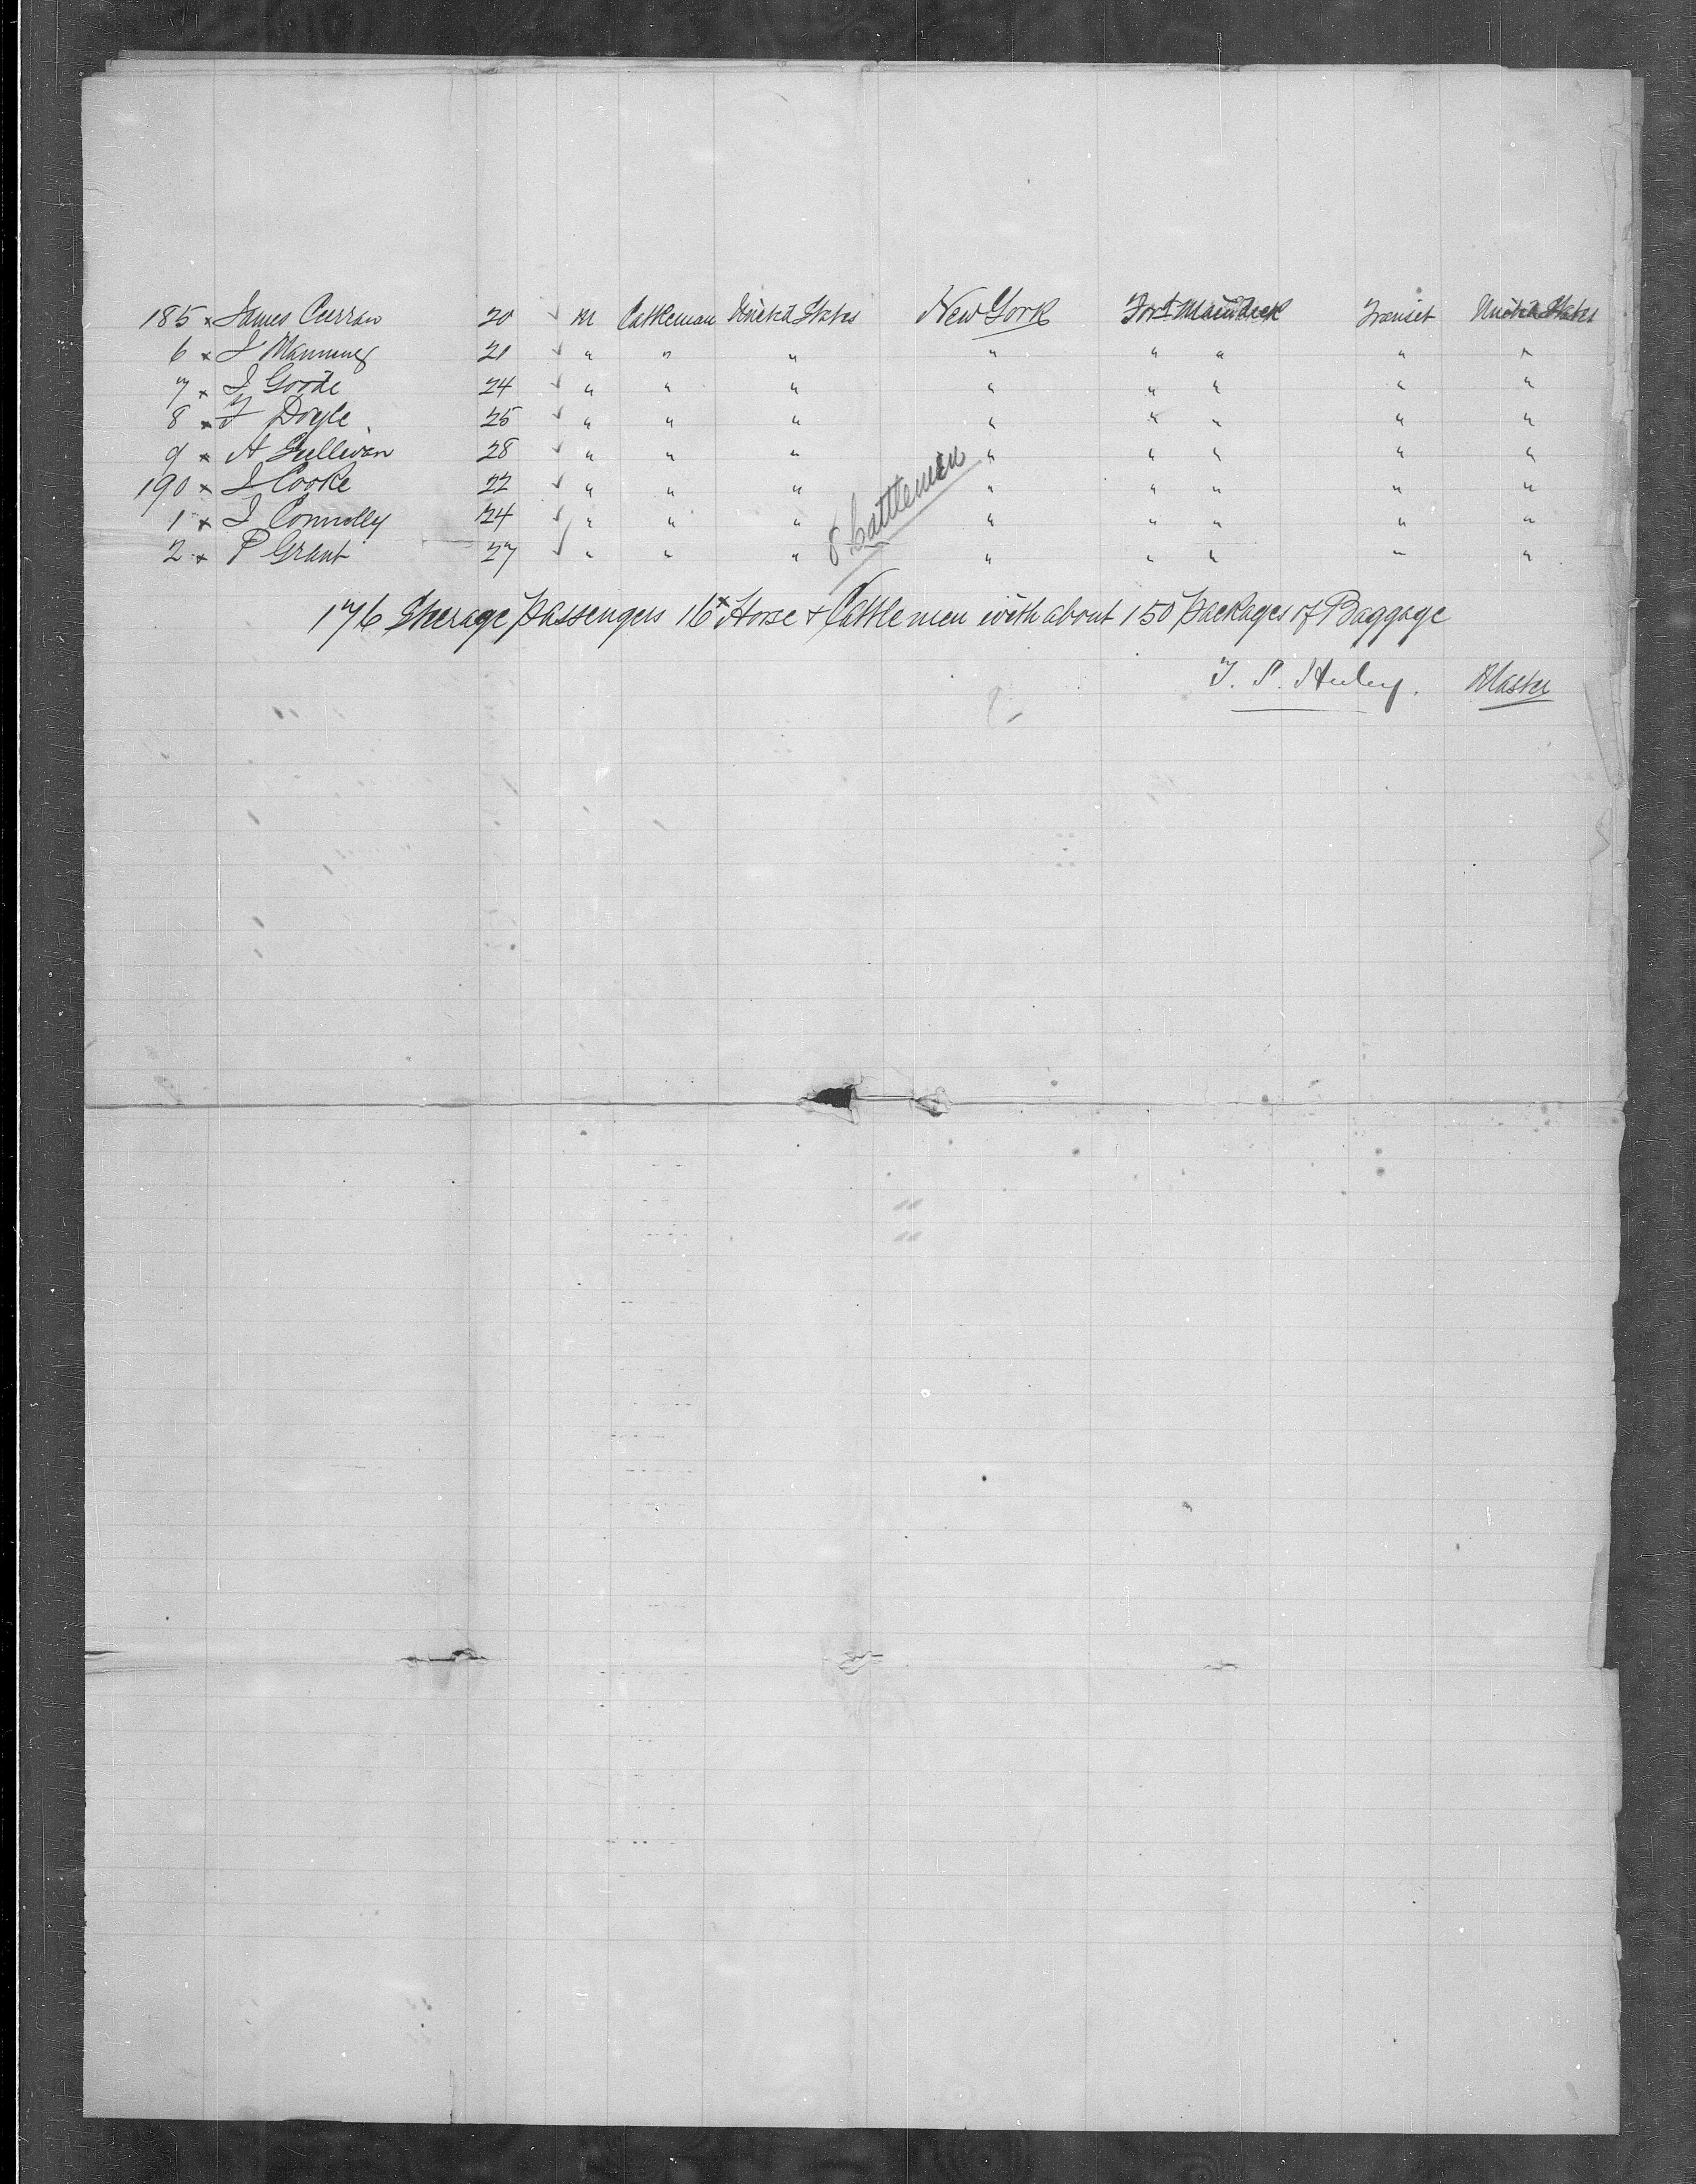 185 x James Curran 20 ✓ M Cattleman United States New York For'd Main Deck Transit United States
6 x J Manning 21 ✓ " " " " " " " "
7 x J Goode 24 ✓ " " " " " " " "
8 x J Doyle 25 ✓ " " " " " " " "
9 x A Sullivan 28 ✓ " " " " " " " "
190 x J Cooke 22 ✓ " " " " " " " "
1 x J Connolly 24 ✓ " " " " " " " "
2 x P Grant 27 ✓ " " " " " " " "
8 Cattlemen
176 Steerage Passengers 16 Horse & Cattlemen with about 150 Packages of Baggage
Master